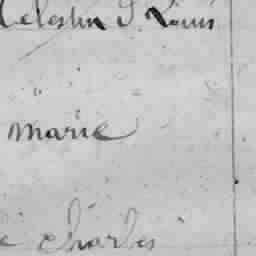 Celestin S. Louis
marie
e Charles